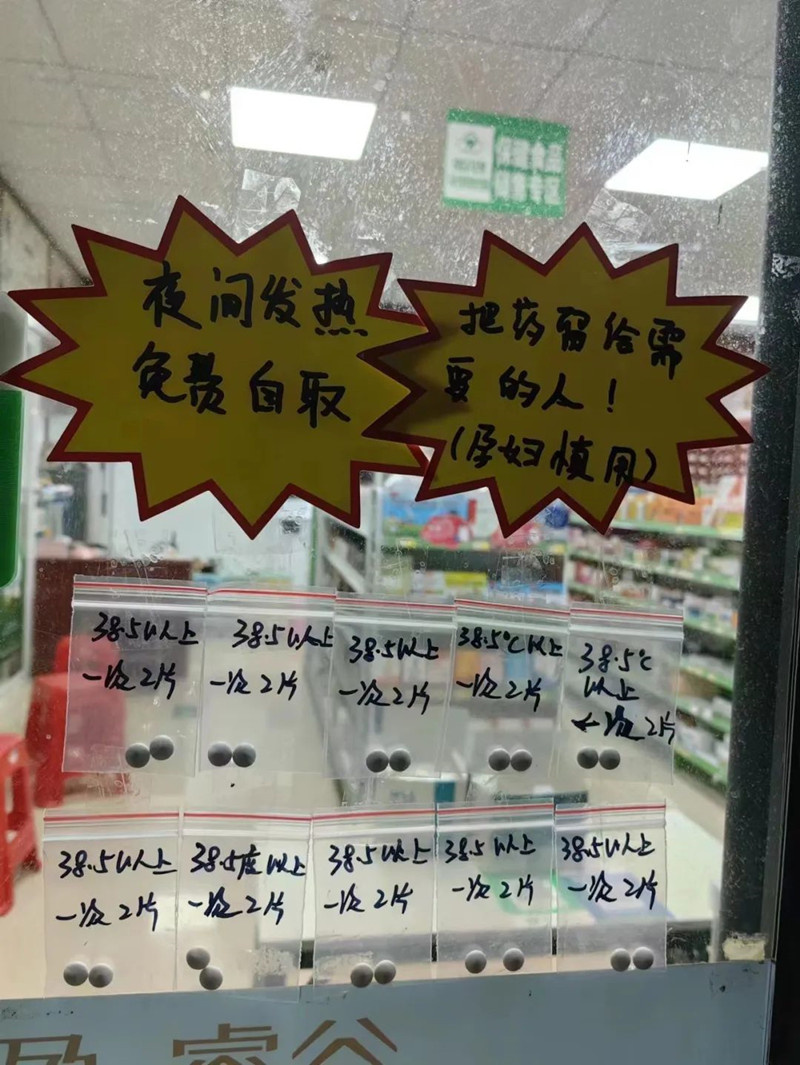 保健食品
销售专区
夜间发热
免费自取
把药留给需
要的人！
（孕妇慎用）
38.5以上
一次2片
38.5以上
一次2片
38.5以上
一次2片
38.5℃以上
一次2片
38.5℃
以上
一次2片
38.5以上
一次2片
38.5度以上
一次2片
38.5以上
一次2片
38.5以上
一次2片
38.5以上
一次2片